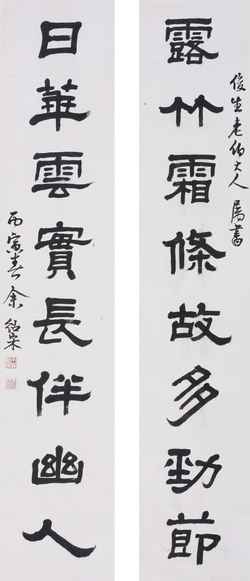 俊生老伯大人属書
露竹霜條故多勁節
日華雲實長伴幽人
丙寅春余紹宋